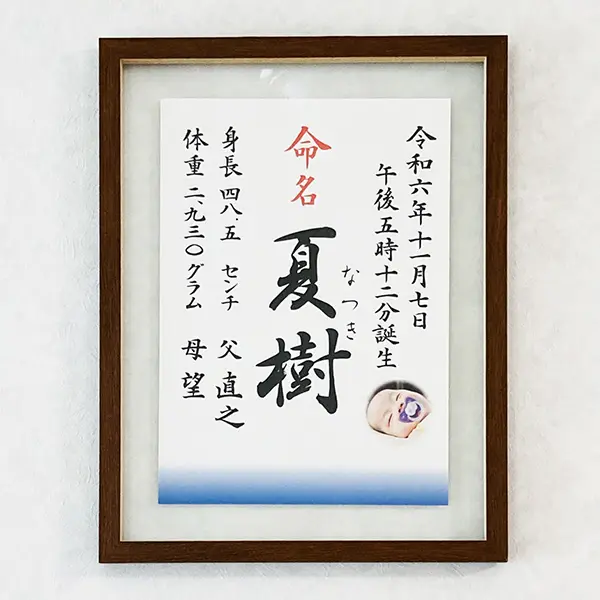 令和六年十一月七日
午後五時十二分誕生
命名
夏樹
なつき
身長 四八.五 センチ 父 直之
体重 二、九三〇グラム 母 望